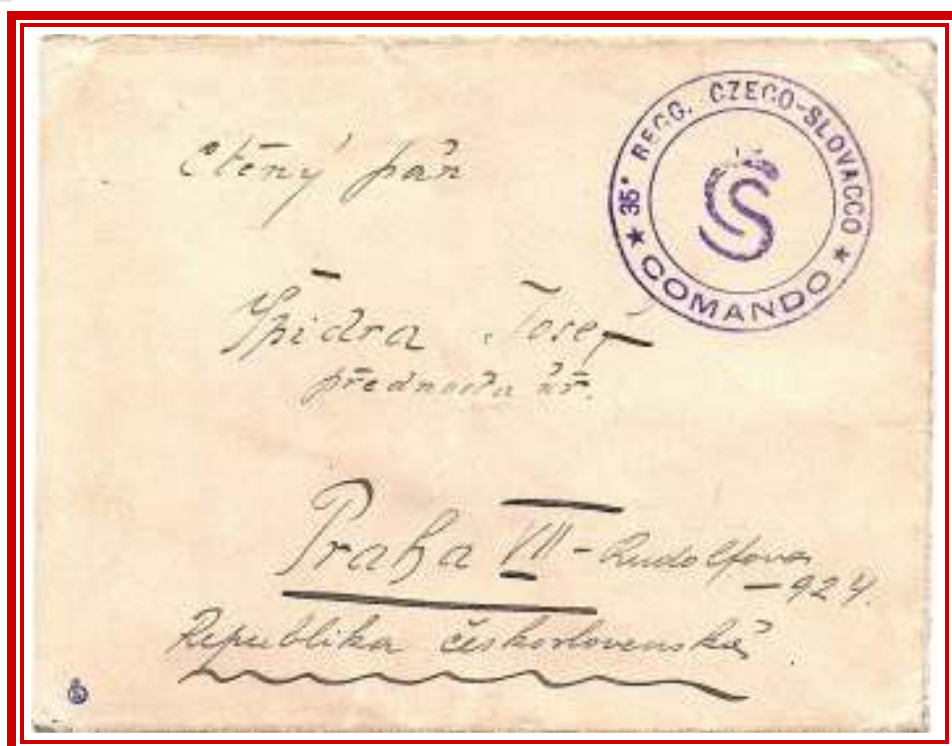 35° REGG. CZECO-SLOVACCO
ČS
★ COMANDO ★
Ctěný pán
Špidra Josef
přednosta úř.
Praha VII - Rudolfova
- 924.
Republika československá